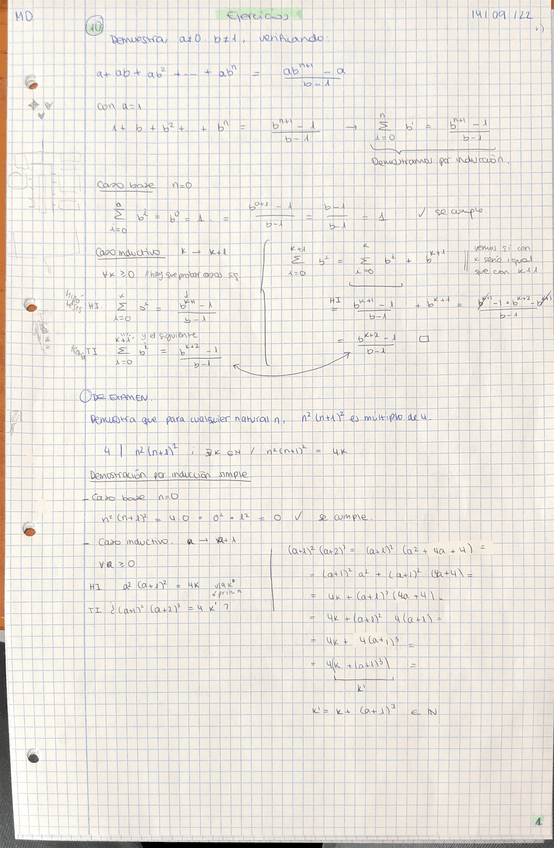 MD
Ejercicios
14/09/22
10
Demuestra, a≠0 b≠1, verificando:
a + ab + ab² + ... + abⁿ = (abⁿ⁺¹ - a)/(b - 1)
con a=1
1 + b + b² + ... + bⁿ = (bⁿ⁺¹ - 1)/(b - 1) → Σ_{i=0}^{n} bⁱ = (bⁿ⁺¹ - 1)/(b - 1)
Demostramos por inducción.
Caso base n=0
Σ_{i=0}^{0} bⁱ = b⁰ = 1. = (b⁰⁺¹ - 1)/(b - 1) = (b-1)/(b-1) = 1 ✓ se cumple
Caso inductivo k → k+1
∀k ≥ 0 // hay que probar
HI Σ_{i=0}^{k} bⁱ = (bᵏ⁺¹ - 1)/(b - 1)
y el siguiente
TI Σ_{i=0}^{k+1} bⁱ = (bᵏ⁺² - 1)/(b - 1)
Σ_{i=0}^{k+1} bⁱ = Σ_{i=0}^{k} bⁱ + bᵏ⁺¹
vemos si con
k sería igual
que con k+1
HI = (bᵏ⁺¹ - 1)/(b - 1) + bᵏ⁺¹ = (bᵏ⁺¹ - 1 + bᵏ⁺² - bᵏ⁺¹)/(b - 1)
= (bᵏ⁺² - 1)/(b - 1) □
DE EXAMEN.
Demuestra que para cualquier natural n, n²(n+1)² es múltiplo de 4.
4 | n²(n+1)² ; ∃k ∈ ℕ / n²(n+1)² = 4k
Demostración por inducción simple
- Caso base n=0
n²(n+1)² = 4·0 = 0²·1² = 0 ✓ se cumple.
- Caso inductivo. a → a+1
∀a ≥ 0
HI a²(a+1)² = 4k
TI ¿(a+1)² (a+2)² = 4 k' ?
(a+1)² (a+2)² = (a+1)² (a² + 4a + 4) =
= (a+1)² a² + (a+1)² (4a+4) =
= 4k + (a+1)² (4a+4) =
= 4k + (a+1)² 4(a+1) =
= 4k + 4(a+1)³ =
= 4(k + (a+1)³) =
k'
k' = k + (a+1)³ ∈ ℕ
1